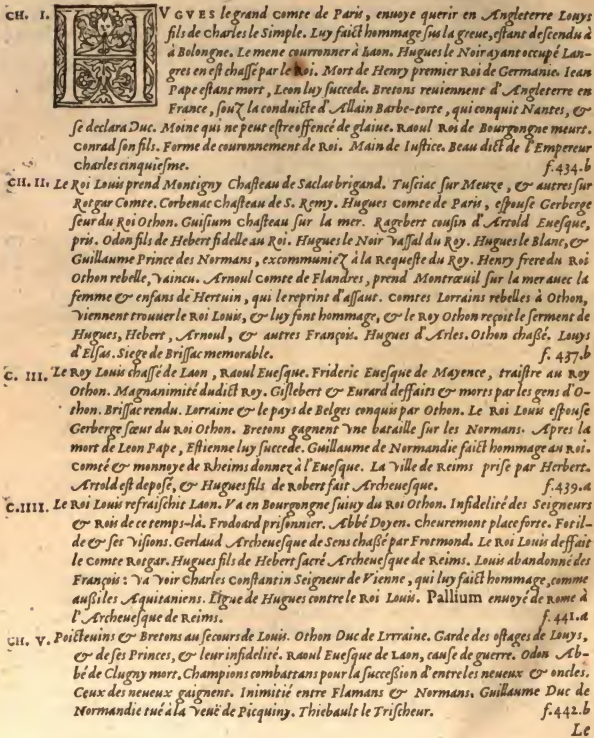 CH. I. HVGVES le grand Comte de Paris, enuoye querir en Angleterre Louys
fils de Charles le Simple. Luy faict hommage sur la greue, estant descendu à
à Bolongne. Le mene couronner à Laon. Hugues le Noir ayant occupé Lan-
gres en est chassé par le Roi. Mort de Henry premier Roi de Germanie. Iean
Pape estant mort, Leon luy succede. Bretons reuiennent d'Angleterre en
France, souz la conduicte d'Allain Barbe-torte, qui conquit Nantes, &
se declara Duc. Moine qui ne peut estre offencé de glaiue. Raoul Roi de Bourgongne meurt.
Conrad son fils. Forme de couronnement de Roi. Main de Iustice. Beau dict de l'Empereur
Charles cinquiesme. f. 434.b
CH. II. Le Roi Louis prend Montigny Chasteau de Saclas brigand. Tusciac sur Meuze, & autres sur
Rotgar Comte. Corbenac Chasteau de S. Remy. Hugues Comte de Paris, espouse Gerberge
seur du Roi Othon. Guisium Chasteau sur la mer. Ragebert cousin d'Artold Euesque,
pris. Odon fils de Hebert fidelle au Roi. Hugues le Noir vassal du Roy. Hugues le Blanc, &
Guillaume Prince des Normans, excommuniez à la Requeste du Roy. Henry frere du Roi
Othon rebelle, vaincu. Arnoul Comte de Flandres, prend Montrœuil sur la mer auec la
femme & enfans de Hertuin, qui le reprint d'assaut. Comtes Lorrains rebelles à Othon,
viennent trouuer le Roi Louis, & luy font hommage, & le Roy Othon reçoit le serment de
Hugues, Hebert, Arnoul, & autres François. Hugues d'Arles. Othon chassé. Louys
d'Elsas. Siege de Brissac memorable. f. 437.b
C. III. Le Roy Louis chassé de Laon, Raoul Euesque. Frideric Euesque de Mayence, traistre au Roy
Othon. Magnanimité dudict Roy. Gislebert & Eurard deffaits & morts par les gens d'O-
thon. Brissac rendu. Lorraine & le pays de Belges conquis par Othon. Le Roi Louis espouse
Gerberge sœur du Roi Othon. Bretons gagnent vne bataille sur les Normans. Apres la
mort de Leon Pape, Estienne luy succede. Guillaume de Normandie faict hommage au Roi.
Comté & monnoye de Rheims donnez à l'Euesque. La ville de Reims prise par Herbert.
Artold est deposé, & Hugues fils de Robert fait Archeuesque. f. 439.a
C. IIII. Le Roi Louis refraischit Laon. Va en Bourgongne suiuy du Roi Othon. Infidelité des Seigneurs
& Rois de ce temps-là. Frodoard prisonnier. Abbé Doyen. Cheuremont place forte. Fotil-
de & ses visions. Gerlaud Archeuesque de Sens chassé par Frotmond. Le Roi Louis deffait
le Comte Rotgar. Hugues fils de Hebert sacré Archeuesque de Reims. Louis abandonné des
François: va voir Charles Constantin Seigneur de Vienne, qui luy faict hommage, comme
aussi les Aquitaniens. Ligue de Hugues contre le Roi Louis. Pallium enuoyé de Rome à
l'Archeuesque de Reims. f. 441.a
CH. V. Poicteuins & Bretons au secours de Louis. Othon Duc de Lrrraine. Garde des ostages de Louys,
& de ses Princes, & leur infidelité. Raoul Euesque de Laon, cause de guerre. Odon Ab-
bé de Clugny mort. Champions combattans pour la succession d'entre les neueux & oncles.
Ceux des neueux gaignent. Inimitié entre Flamans & Normans. Guillaume Duc de
Normandie tué à la veuë de Picquiny. Thiebault le Trischeur. f. 442.b
Le